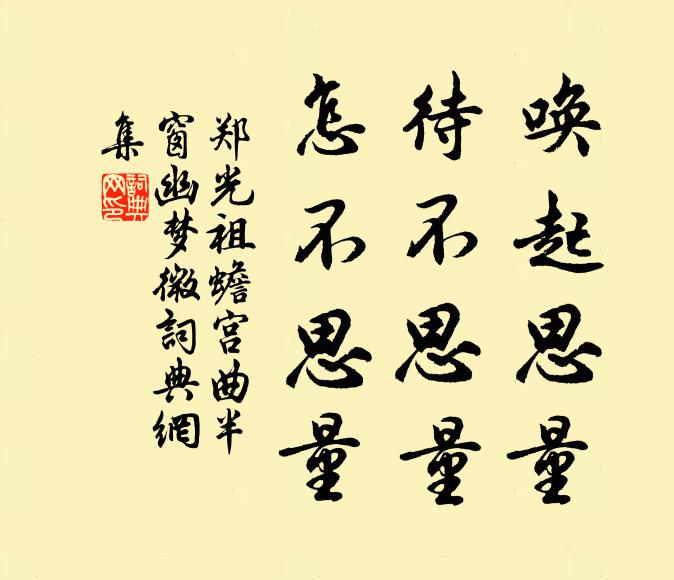 唤起思量
待不思量
怎不思量
郑光祖蟾宫曲半
窗幽梦微詞典網
集
詞典
网印